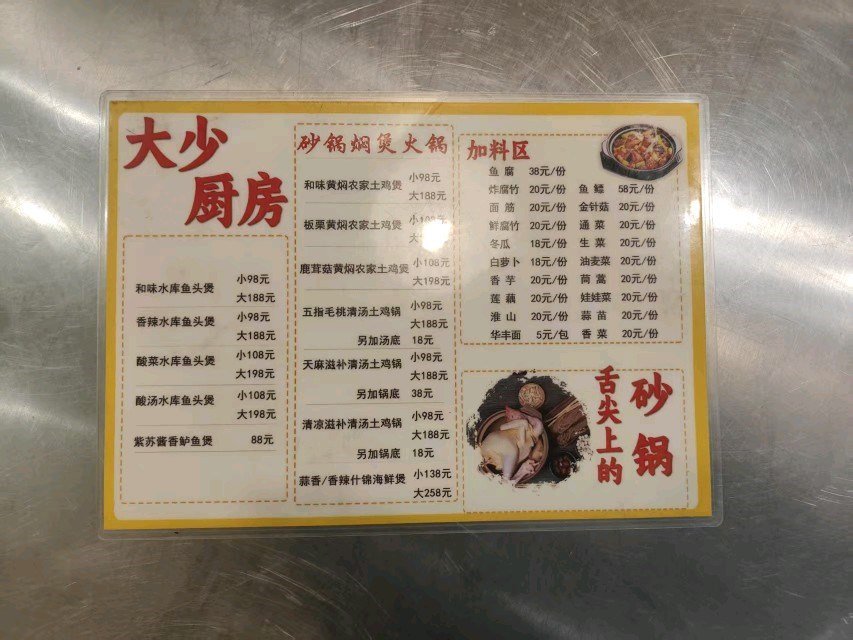 大少
厨房
和味水库鱼头煲 小98元
大188元
香辣水库鱼头煲 小98元
大188元
酸菜水库鱼头煲 小108元
大198元
酸汤水库鱼头煲 小108元
大198元
紫苏酱香鲈鱼煲 88元
砂锅焖煲火锅
和味黄焖农家土鸡煲 小98元
大188元
板栗黄焖农家土鸡煲
鹿茸菇黄焖农家土鸡煲 小108元
大198元
五指毛桃清汤土鸡锅 小98元
大188元
另加汤底 18元
天麻滋补清汤土鸡锅 小98元
大188元
另加锅底 38元
清凉滋补清汤土鸡锅 小98元
大188元
另加锅底 18元
蒜香/香辣什锦海鲜煲 小138元
大258元
加料区
鱼腐 38元/份
炸腐竹 20元/份 鱼鳔 58元/份
面筋 20元/份 金针菇 20元/份
鲜腐竹 20元/份 通菜 20元/份
冬瓜 18元/份 生菜 20元/份
白萝卜 18元/份 油麦菜 20元/份
香芋 20元/份 茼蒿 20元/份
莲藕 20元/份 娃娃菜 20元/份
淮山 20元/份 蒜苗 20元/份
华丰面 5元/包 香菜 20元/份
舌尖上的
砂锅